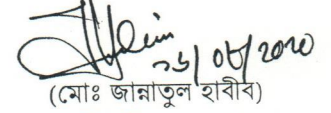 ২৬/০৮/২০২০
(মোঃ জান্নাতুল হাবীব)